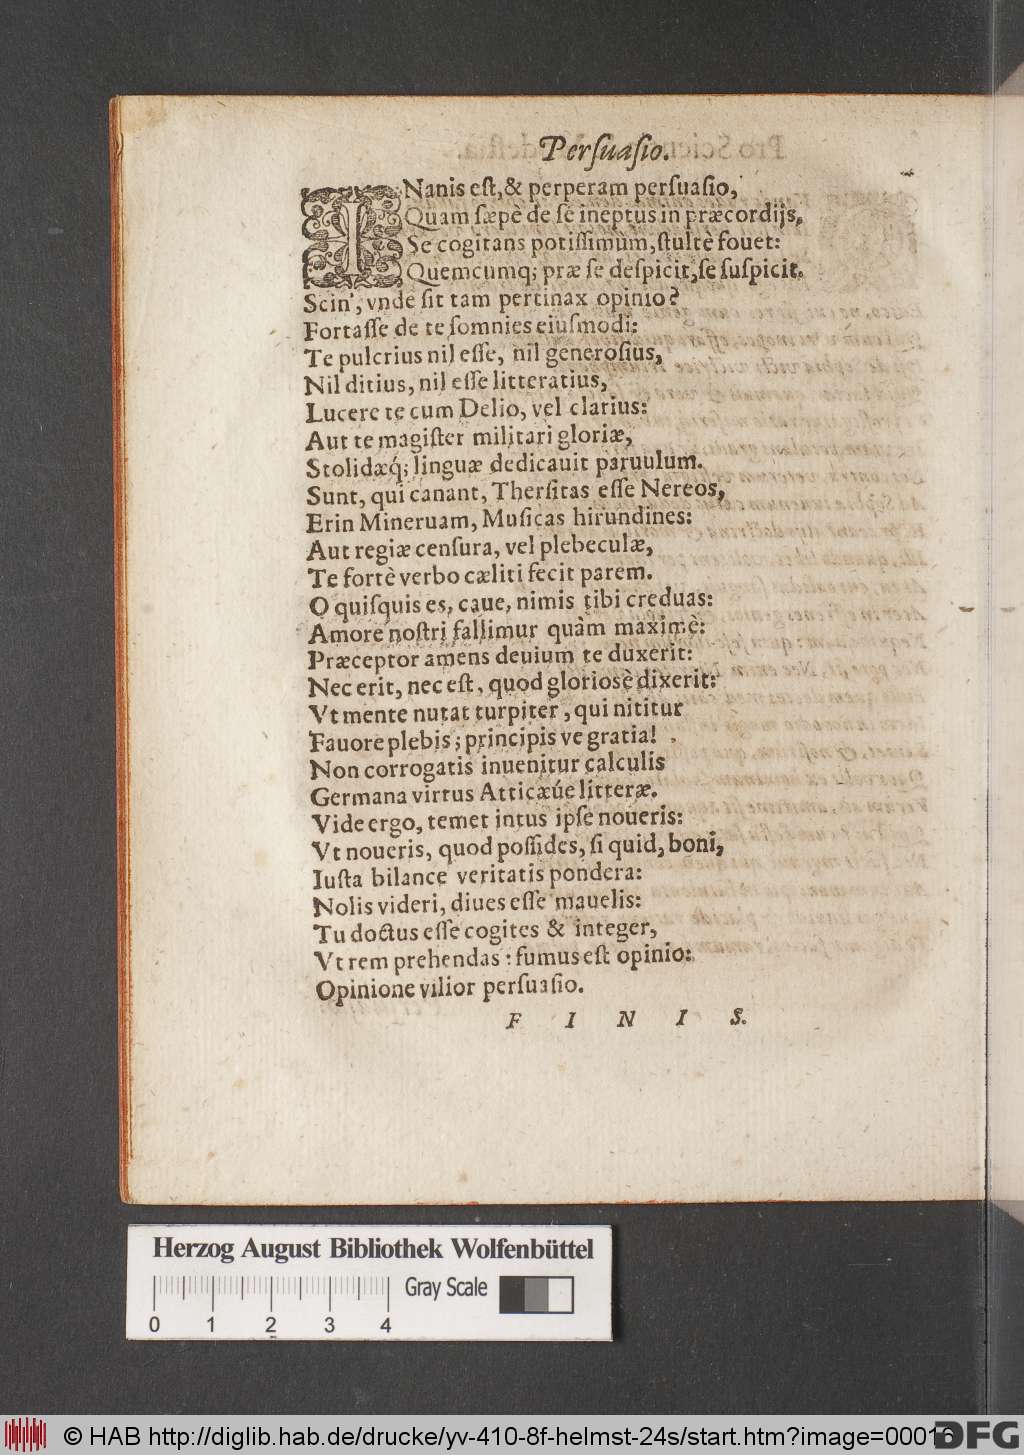 Perſuaſio.
INanis eſt, & perperam perſuaſio,
Quam ſæpè de ſe ineptus in præcordijs,
Se cogitans potiſſimùm, ſtultè fouet:
Quemcumq; præ ſe deſpicit, ſe ſuſpicit.
Scin', vnde ſit tam pertinax opinio?
Fortaſſe de te ſomnies eiuſmodi:
Te pulcrius nil eſſe, nil generoſius,
Nil ditius, nil eſſe litteratius,
Lucere te cum Delio, vel clarius:
Aut te magiſter militari gloriæ,
Stolidæq́; linguæ dedicauit paruulum.
Sunt, qui canant, Therſitas eſſe Nereos,
Erin Mineruam, Muſicas hirundines:
Aut regiæ cenſura, vel plebeculæ,
Te fortè verbo cæliti fecit parem.
O quiſquis es, caue, nimis tibi creduas:
Amore noſtri fallimur quàm maximè:
Præceptor amens deuium te duxerit:
Nec erit, nec eſt, quod glorioſè dixerit:
Vt mente nutat turpiter, qui nititur
Fauore plebis; principis ve gratia!
Non corrogatis inuenitur calculis
Germana virtus Atticæúe litteræ.
Vide ergo, temet intus ipſe noueris:
Vt noueris, quod poſſides, ſi quid, boni,
Iuſta bilance veritatis pondera:
Nolis videri, diues eſſe mauelis:
Tu doctus eſſe cogites & integer,
Vt rem prehendas: fumus eſt opinio:
Opinione vilior perſuaſio.
F I N I S.
Herzog August Bibliothek Wolfenbüttel
Gray Scale
0 1 2 3 4
© HAB http://diglib.hab.de/drucke/yv-410-8f-helmst-24s/start.htm?image=00016
DFG